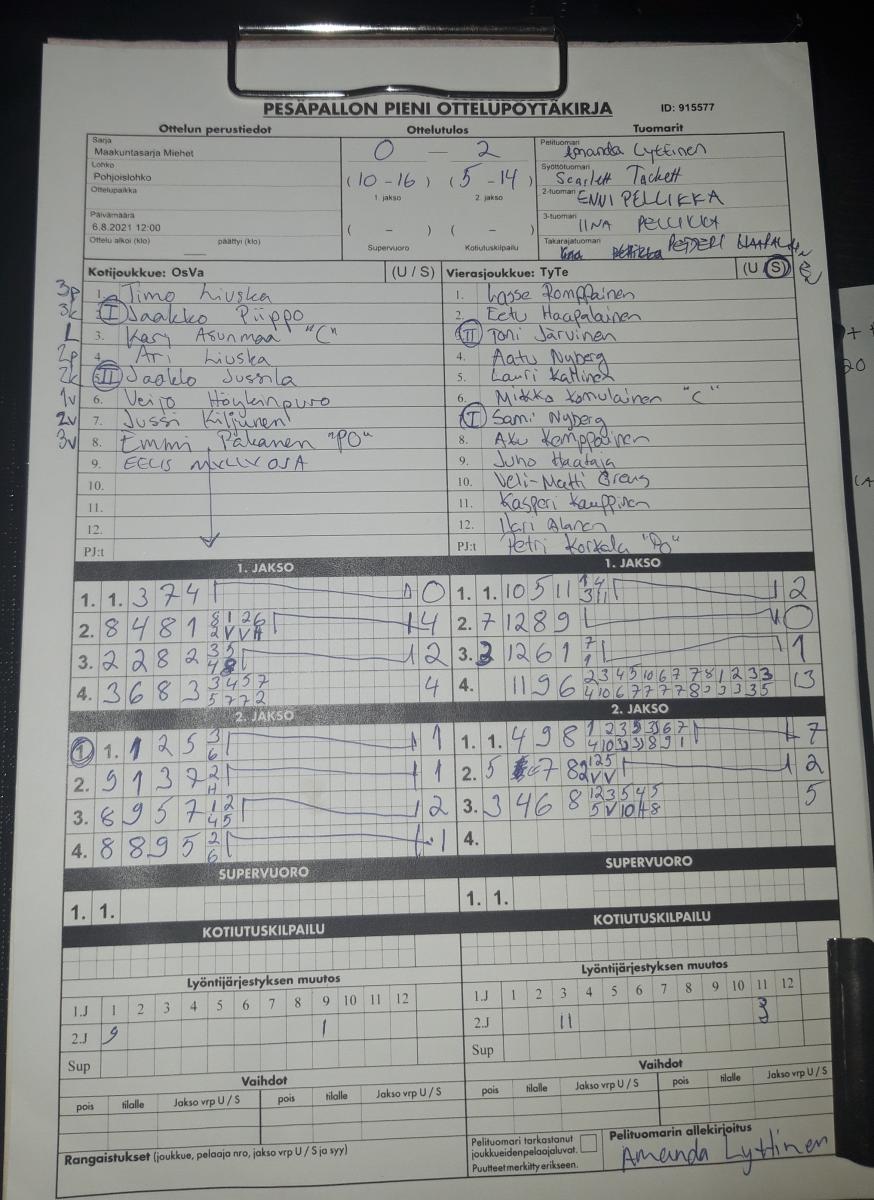 PESÄPALLON PIENI OTTELUPÖYTÄKIRJA ID: 915577
Ottelun perustiedot Ottelutulos Tuomarit
Sarja
Maakuntasarja Miehet
Lohko
Pohjoislohko
Ottelupaikka
Päivämäärä
6.8.2021 12:00
Ottelu alkoi (klo) päättyi (klo)
0 — 2
(10 - 16) (5 - 14)
1. jakso 2. jakso
( - ) ( - )
Supervuoro Kotiutuskilpailu
Pelituomari Amanda Lyttinen
Syöttötuomari Scarlett Tackett
2-tuomari ENNI PELLIKKA
3-tuomari IINA PELLIKKA
Takarajatuomari
Kotijoukkue: OsVa (U / S)
3p 1. Timo Liuska
3k I Jaakko Piippo
L 3. Kary Asunmaa "C"
2p 4. Ari Liuska
2k 5. II Jaakko Jussila
1v 6. Veijo Höylänpuro
2v 7. Jussi Kiljunen
3v 8. Emmi Pakanen "PO"
9. EELIS MYLLYOJA
10.
11.
12.
PJ:t
Vierasjoukkue: TyTe (U / S)
1. Lasse Romppainen
2. Eetu Haapalainen
II Toni Järvinen
4. Aatu Nyberg
5. Lauri
6. Mikko Komulainen "C"
I Sami Nyberg
8. Aku Komppalainen
9. Juho Haataja
10. Veli-Matti
11. Kasperi Kauppinen
12. Ilari Alanen
PJ:t Petri Korkala "PO"
1. JAKSO
1. 1. 3 7 4 0
2. 8 4 8 1 4
3. 2 2 8 2 2
4. 3 6 8 3 3 4 5 7 4
5 7 7 2
1. JAKSO
1. 1. 10 5 11 2
2. 7 12 8 9 0
3. 2 12 6 1 7 1
1
4. 11 9 6 2 3 4 5 10 6 7 7 8 1 2 3 3 13
4 10 6 7 7 7 7 8 3 3 3 3 5
2. JAKSO
1. 1. 1 2 5 3 1
6
2. 9 1 3 7 2 1
H
3. 8 9 5 7 1 2 2
4 5
4. 8 8 9 5 2 1
6
2. JAKSO
1. 1. 4 9 8 7
2. 5 7 8 2
3. 3 4 6 8 1 2 3 5 4 5 5
5 V 10 H 8
4.
SUPERVUORO
1. 1.
SUPERVUORO
1. 1.
KOTIUTUSKILPAILU
KOTIUTUSKILPAILU
Lyöntijärjestyksen muutos
1.J 1 2 3 4 5 6 7 8 9 10 11 12
2.J 9 1
Sup
Lyöntijärjestyksen muutos
1.J 1 2 3 4 5 6 7 8 9 10 11 12
2.J 11 3
Sup
Vaihdot
pois tilalle Jakso vrp U / S pois tilalle Jakso vrp U / S
Vaihdot
pois tilalle Jakso vrp U / S pois tilalle Jakso vrp U / S
Rangaistukset (joukkue, pelaaja nro, jakso vrp U / S ja syy)
Pelituomari tarkastanut
joukkueidenpelaajaluvat.
Puutteet merkitty erikseen.
Pelituomarin allekirjoitus
Amanda Lyttinen